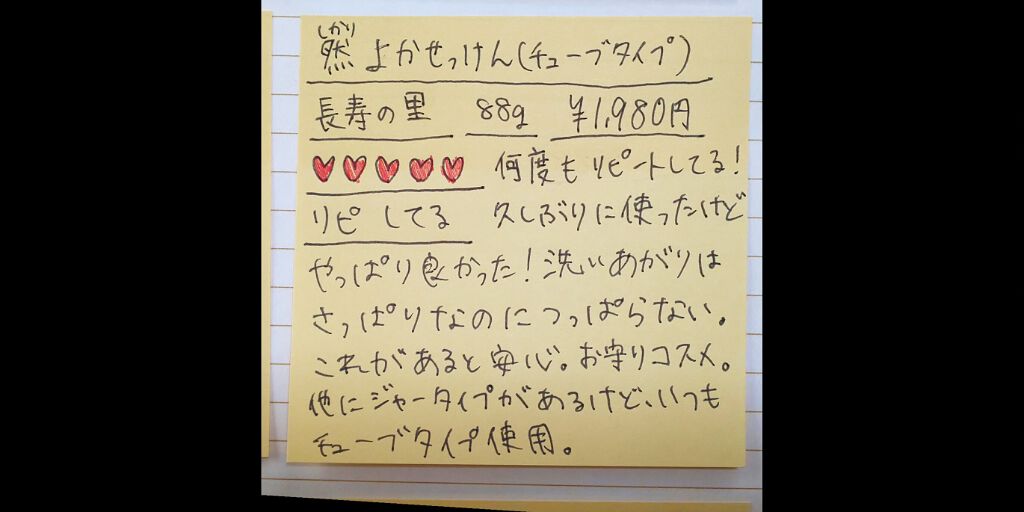 しかり
然 よかせっけん(チューブタイプ)
長寿の里 88g ¥1,980円
何度もリピートしてる!
リピしてる 久しぶりに使ったけど
やっぱり良かった!洗いあがりは
さっぱりなのにつっぱらない。
これがあると安心。お守りコスメ。
他にジャータイプがあるけど、いつも
チューブタイプ使用。